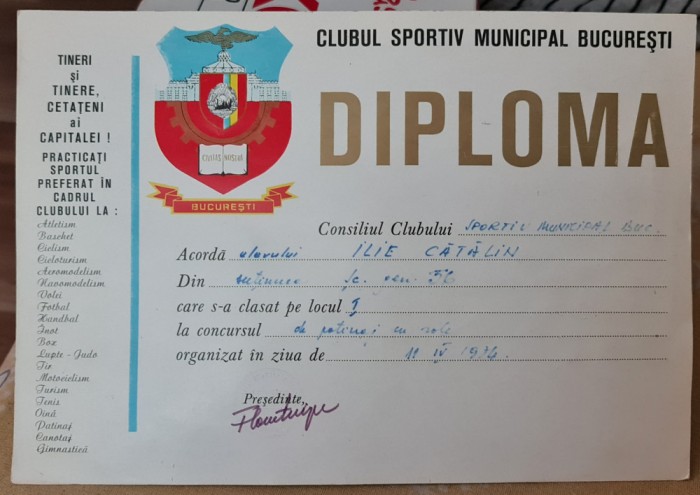 CLUBUL SPORTIV MUNICIPAL BUCUREȘTI
DIPLOMA
TINERI
și
TINERE,
CETAȚENI
ai
CAPITALEI !
PRACTICAȚI
SPORTUL
PREFERAT ÎN
CADRUL
CLUBULUI LA :
Atletism
Baschet
Ciclism
Cicloturism
Aeromodelism
Navomodelism
Volei
Fotbal
Handbal
Înot
Box
Lupte - Judo
Tir
Motociclism
Turism
Tenis
Oină
Patinaj
Canotaj
Gimnastică
CIVITAS NOSTRA
BUCUREȘTI
Consiliul Clubului SPORTIV MUNICIPAL BUC.
Acordă elevului ILIE CĂTĂLIN
Din Șc. gen.
care s-a clasat pe locul 1
la concursul de patinaj cu role
organizat în ziua de 11 IV 1974.
Președinte,